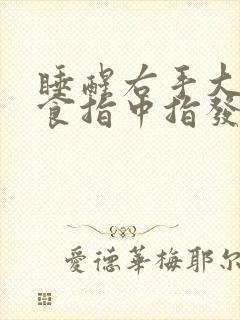 睡醒右手大
食指中指發
愛德華梅耶尔